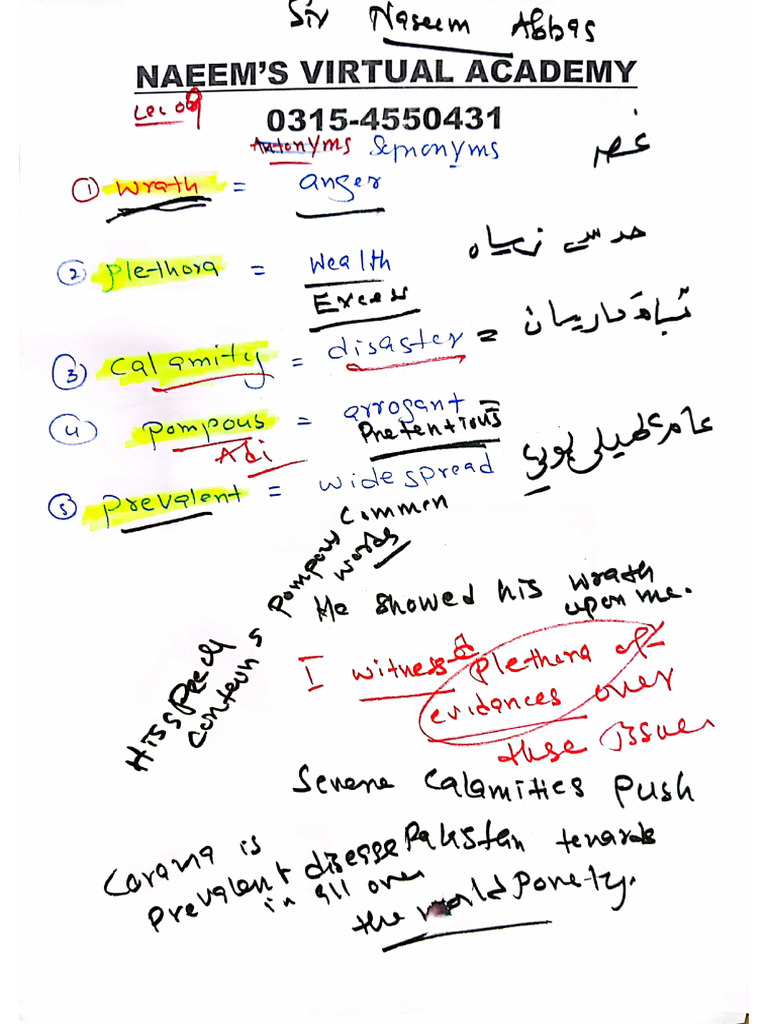 Sir Naseem Abbas
NAEEM'S VIRTUAL ACADEMY
Lec 09
0315-4550431
Antonyms Synonyms
① Wrath = anger غصہ
② Plethora = Wealth حد سے زیادہ
Excess
③ Calamity = disaster =
④ Pompous = arrogant =
Adj Pretentious
⑤ Prevalent = widespread عام پھیلی ہوئی
Common
His speech contains pompous words
He showed his wrath
upon me.
I witnessed plethora of
evidances over
these issues.
Severe Calamities push
Pakistan towards
Poverty.
Corona is
Prevalent disease
in all over
the world